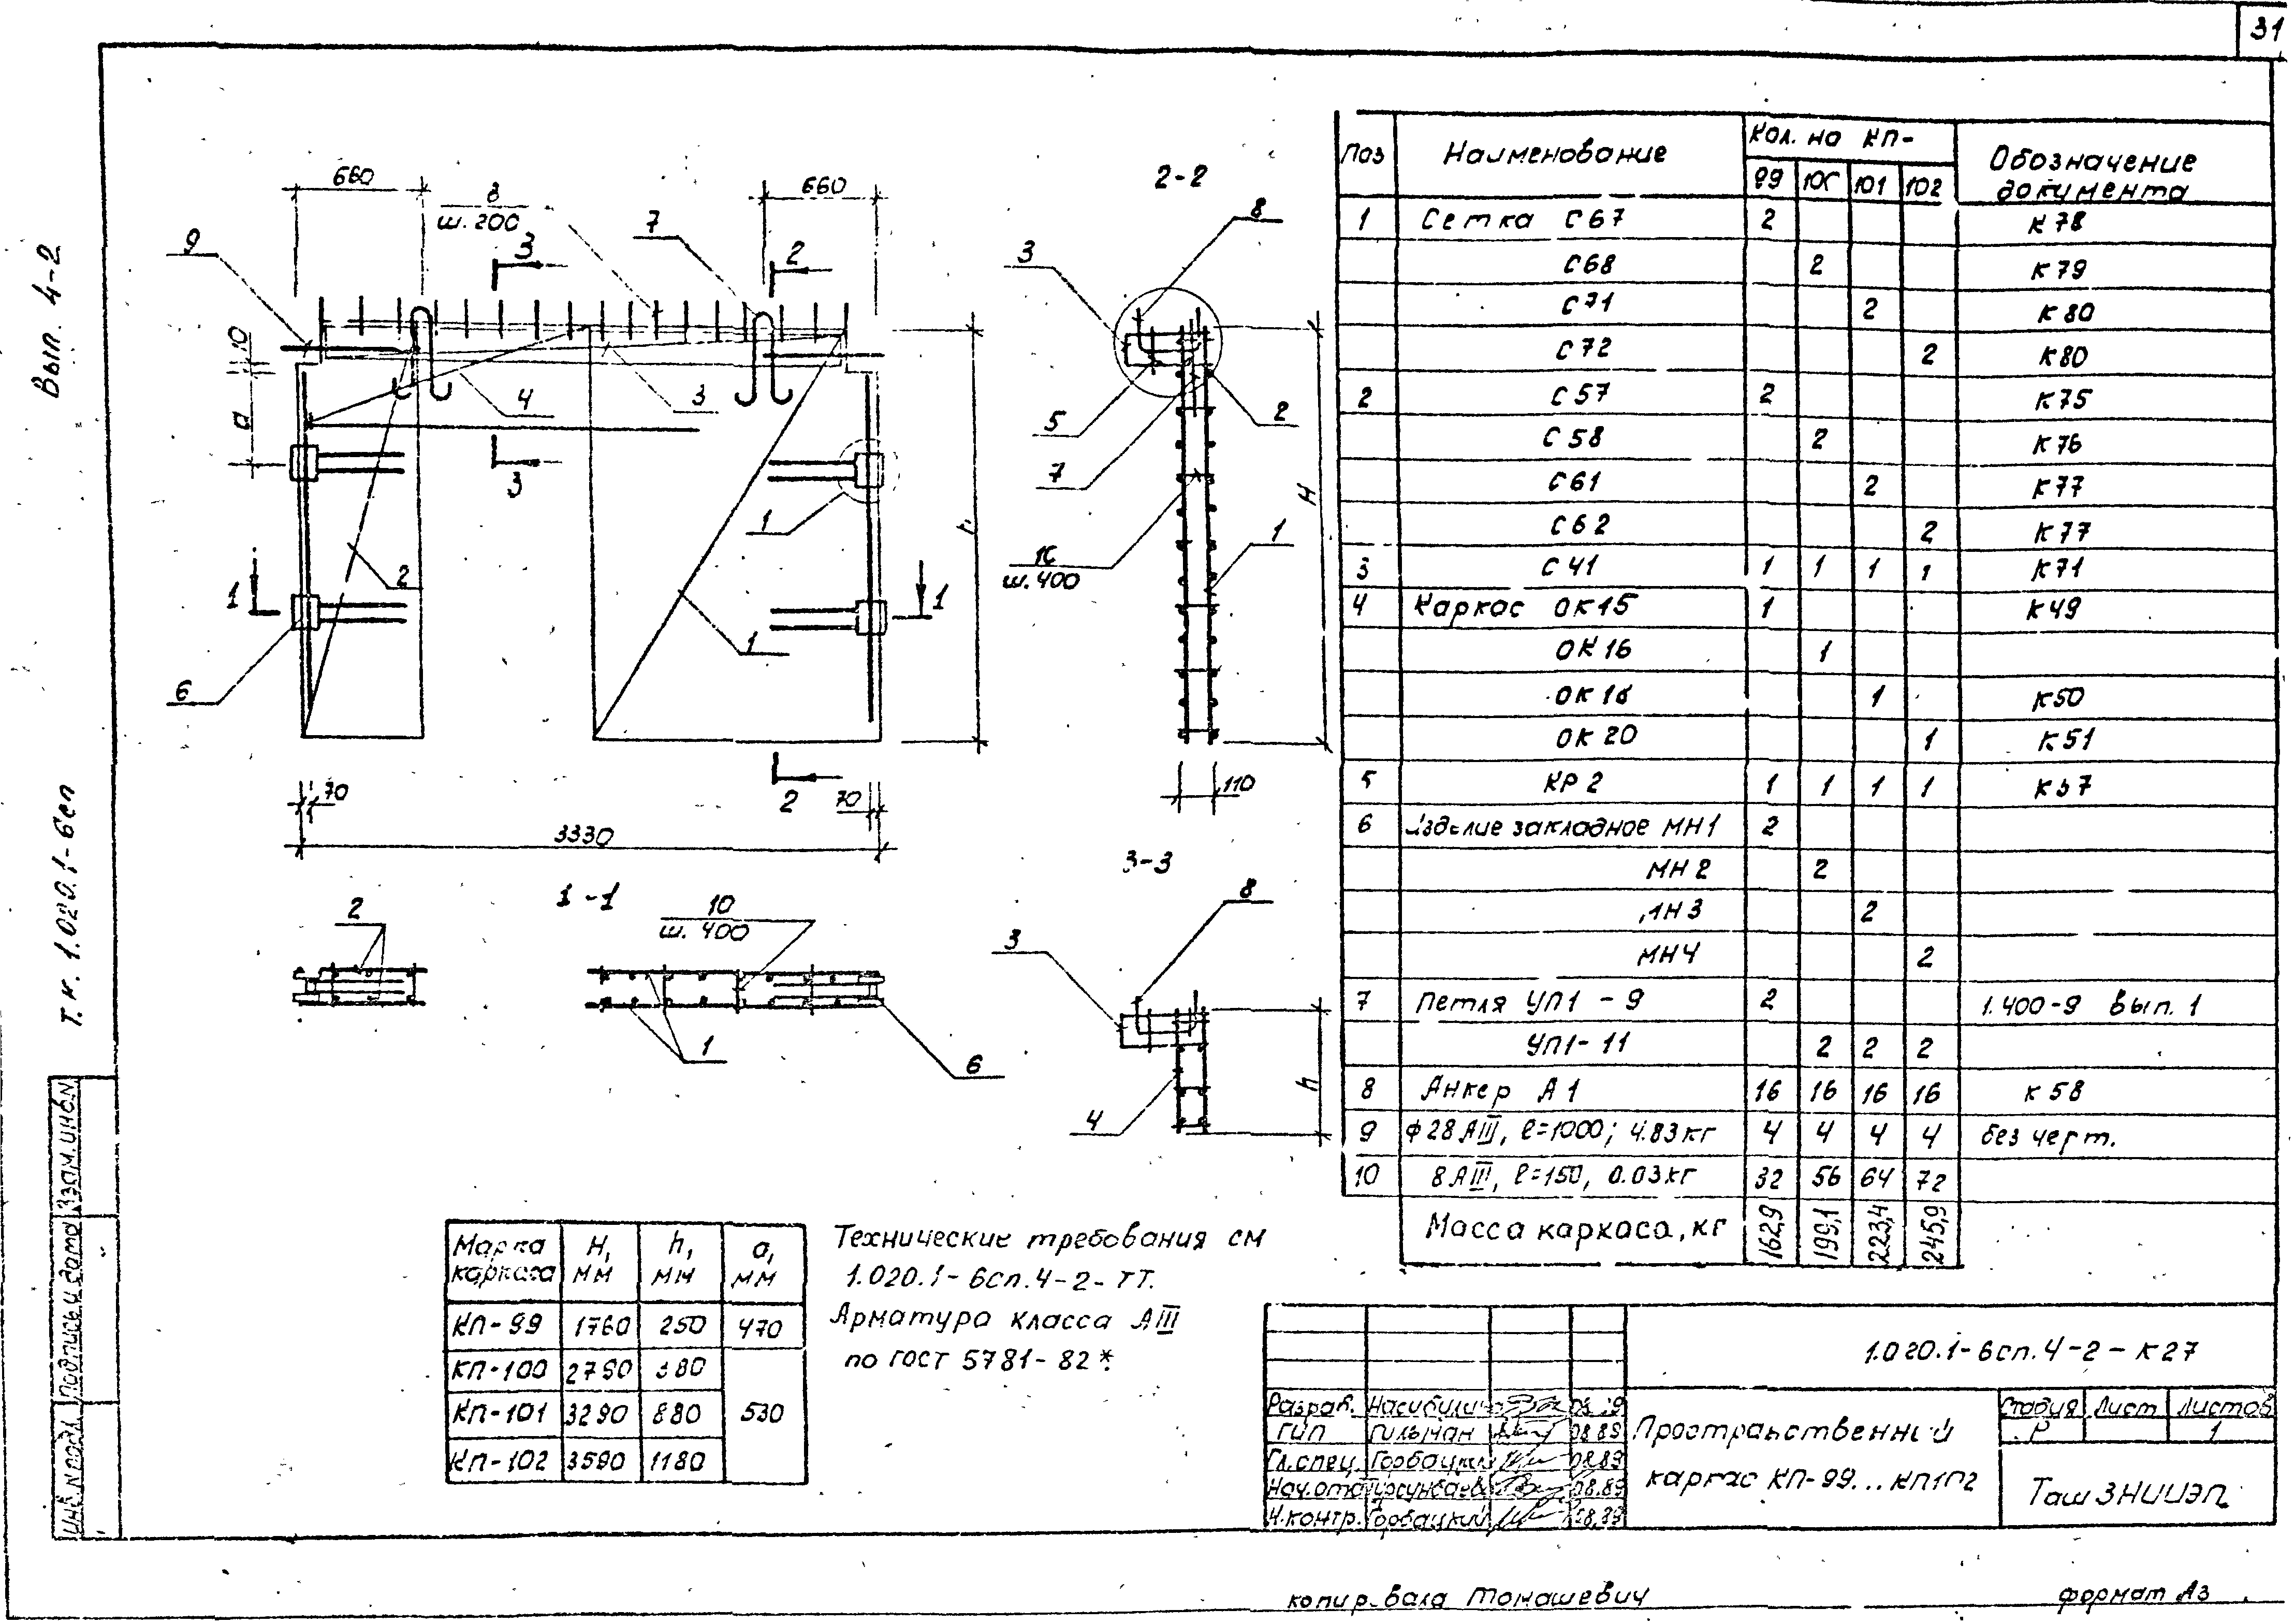 31
Вып. 4-2
Т.к. 1.020.1-6сп
Взам. инв.N
Подпись и дата
Инв. N подл.
660
8
ш. 200
7
660
9
3
2
10
а
4
3
3
1
h
1
2
1
1
6
2
70
70
3330
2-2
8
3
5
2
7
Н
10
ш. 400
1
110
1-1
2
10
ш. 400
1
6
3-3
8
3
h
4
Поз Наименование Кол. на КП- Обозначение документа
99 100 101 102
1 Сетка С67 2 К78
С68 2 К79
С71 2 К80
С72 2 К80
2 С57 2 К75
С58 2 К76
С61 2 К77
С62 2 К77
3 С41 1 1 1 1 К71
4 Каркас ОК15 1 К49
ОК16 1
ОК18 1 К50
ОК20 1 К51
5 КР2 1 1 1 1
6 Изделие закладное МН1 2
МН2 2
МН3 2
МН4 2
7 Петля УП1-9 2 1.400-9 вып. 1
УП1-11 2 2 2
8 Анкер А1 16 16 16 16 К58
9 ф28АIII, ℓ=1000; 4.83кг 4 4 4 4 без черт.
10 8АIII, ℓ=150, 0.03кг 32 56 64 72
Масса каркаса, кг 162,9 199,1 223,4 245,9
Марка каркаса Н, мм h, мм а, мм
КП-99 1760 250 470
КП-100 2790 380
КП-101 3290 880 530
КП-102 3590 1180
Технические требования см
1.020.1-6сп.4-2-ТТ.
Арматура класса АIII
по ГОСТ 5781-82*.
1.020.1-6сп.4-2-К27
Разраб.
ГИП Гильман 08.89
Гл.спец. Горбацкий 08.89
Нач.отд Турсунбаев 08.89
Н.контр. Горбацкий 08.89
Пространственный
каркас КП-99...КП102
Стадия Лист Листов
Р 1
ТашЗНИИЭП
копировала Томашевич
формат А3